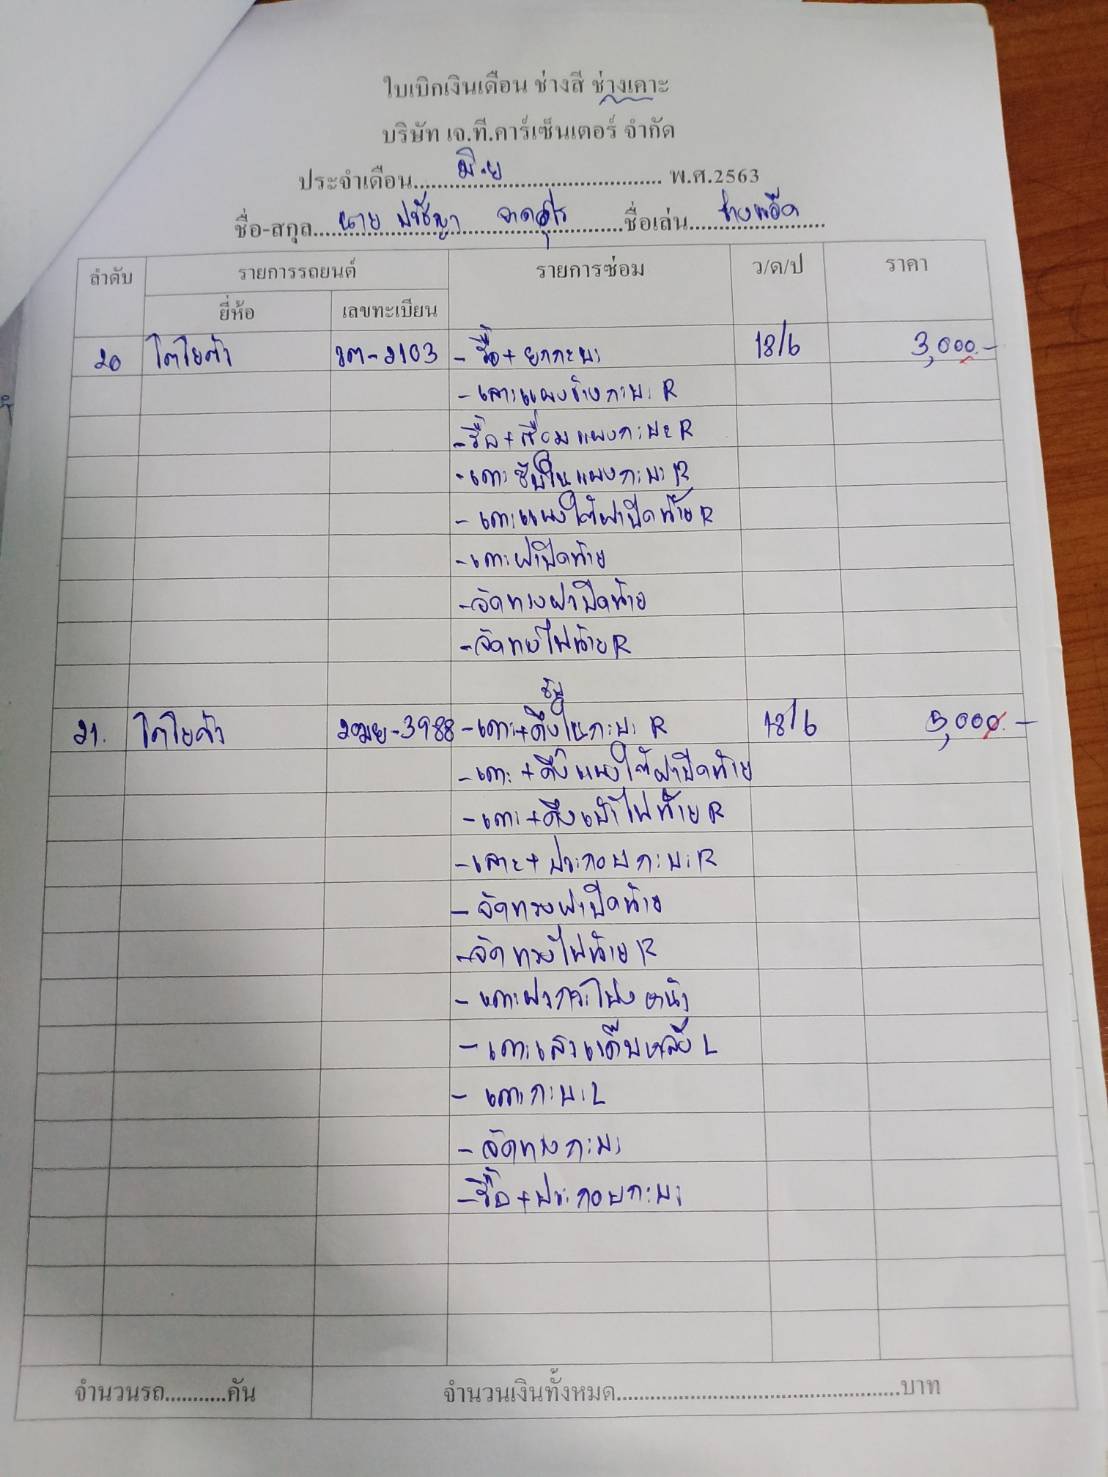 ใบเบิกเงินเดือน ช่างสี ช่างเคาะ
บริษัท เจ.ที.คาร์เซ็นเตอร์ จำกัด
ประจำเดือน มิ.ย พ.ศ.2563
ชื่อ-สกุล นาย ปรัชญา ชื่อเล่น ช่าง
ลำดับ รายการรถยนต์ รายการซ่อม ว/ด/ป ราคา
ยี่ห้อ เลขทะเบียน
20 โตโยต้า -2103 - รื้อ + ยกกะบะ 18/6 3,000.-
- เลาะแผงข้างกะบะ R
- รื้อ + เชื่อมแผงกะบะ R
- เคาะซับในแผงกะบะ R
- เคาะแผงใต้ฝาปิดท้าย R
- เคาะฝาปิดท้าย
- จัดทรงฝาปิดท้าย
- จัดทรงไฟท้าย R
ซุ้ม
21. โตโยต้า -3988 - เคาะ+ดึงในกะบะ R 18/6 5,000.-
- เคาะ + ดึงแผงใต้ฝาปิดท้าย
- เคาะ + ดึงเบ้าไฟท้าย R
- เลาะ + ประกอบกะบะ R
- จัดทรงฝาปิดท้าย
- จัดทรงไฟท้าย R
- เคาะฝากระโปรงหน้า
- เคาะเสา L
- เคาะกะบะ L
- จัดทรงกะบะ
- รื้อ + ประกอบกะบะ
จำนวนรถ...........คัน จำนวนเงินทั้งหมด...............................................บาท